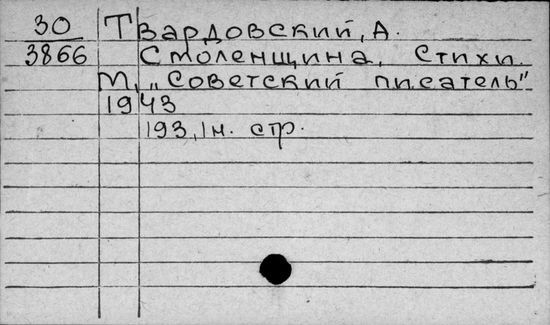 30 Твардовский, А.
3866 Смоленщина. Стихи.
М., „Советский писатель"
1943
193, 1н. стр.